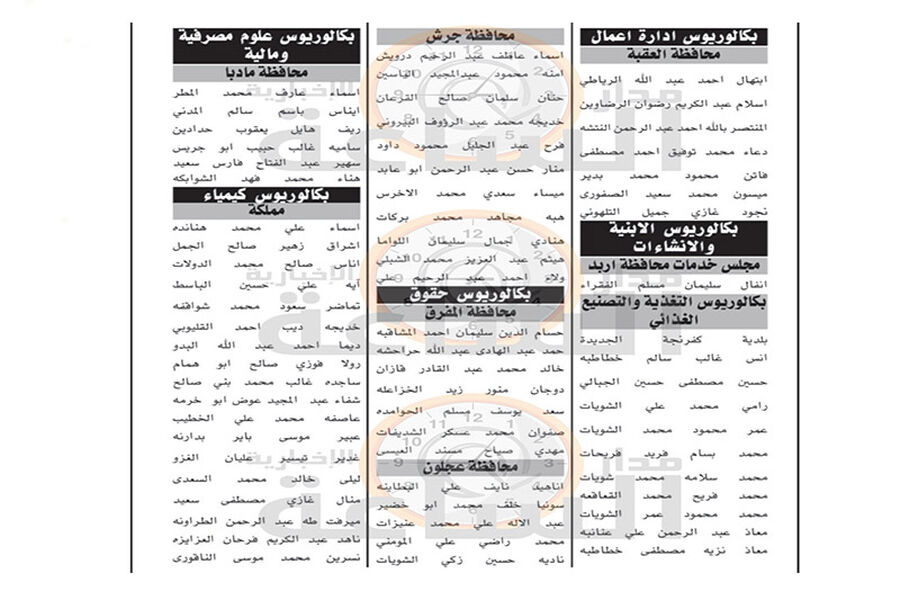 بكالوريوس ادارة اعمال
محافظة العقبة
ابتهال احمد عبد الله الرياطي
اسلام عبد الكريم رضوان الرضاوين
المنتصر بالله احمد عبد الرحمن النتشه
دعاء محمد توفيق احمد مصطفى
فاتن محمود محمد بدير
ميسون محمد سعيد الصفوري
نجود غازي جميل التلهوني
بكالوريوس الابنية
والانشاءات
مجلس خدمات محافظة اربد
انفال سليمان مسلم الفقراء
بكالوريوس التغذية والتصنيع
الغذائي
بلدية كفرنجة الجديدة
انس غالب سالم خطاطبه
حسين مصطفى حسين الجبالي
رامي محمد علي الشويات
عمر محمود محمد الشويات
محمد بسام فريد فريحات
محمد سلامه محمد شويات
محمد فريح محمد التعاقعه
محمد محمود عمر الشويات
معاذ عبد الرحمن علي عنانبه
معاذ نزيه مصطفى خطاطبه
محافظة جرش
اسماء عاطف عبد الرحيم درويش
امنه محمود عبدالمجيد الياسين
حنان سلمان صالح القرعان
خديجه محمد عبد الرؤوف البيروني
فرح عبد الجليل محمود داود
منار حسن عبد الرحمن ابو عابد
ميساء سعدي محمد الاخرس
هبه مجاهد محمد بركات
هنادي جمال سليمان اللواما
هيثم عبد العزيز محمد الشبلي
ولاء احمد عبد الرحيم علي
بكالوريوس حقوق
محافظة المفرق
حسام الدين سليمان احمد المشاقبه
حمد عبد الهادي عبد الله حراحشه
خالد محمد عبد القادر قازان
دوجان منور زيد الخزاعله
سعد يوسف مسلم الحوامده
صفوان محمد عسكر الشديفات
مهدي صياح مسند العيسى
محافظة عجلون
اناهيد نايف علي البطاينه
سونيا خلف محمد ابو خضير
عبد الاله علي محمد عنيزات
محمد راضي علي المومني
ناديه حسين زكي الشويات
بكالوريوس علوم مصرفية
ومالية
محافظة مادبا
اسماء عارف محمد المطر
ايناس باسم سالم المدني
ريف هايل يعقوب حدادين
ساميه غالب حبيب ابو جريس
سهير عبد الفتاح فارس سعيد
هناء محمد فهد الشوابكه
بكالوريوس كيمياء
مملكة
اسماء علي محمد هنانده
اشراق زهير صالح الجمل
اناس صالح محمد الدولات
آيه علي حسين الباسط
تماضر سعود محمد شواقفه
خديجه ديب احمد القليوبي
ديما احمد عبد الله البدو
رولا فوزي صالح ابو همام
ساجده غالب محمد بني صالح
شفاء عبد المجيد عوض ابو خرمه
عاصفه محمد علي الخطيب
عبير موسى باير بدارنه
غدير تيسير عليان الغزو
ليلى خالد محمد السعدي
منال غازي مصطفى سعيد
ميرفت طه عبد الرحمن الطراونه
ناهد عبد الكريم فرحان العزايزه
نسرين محمد موسى الناقوري
مدار
الساعة
الإخبارية